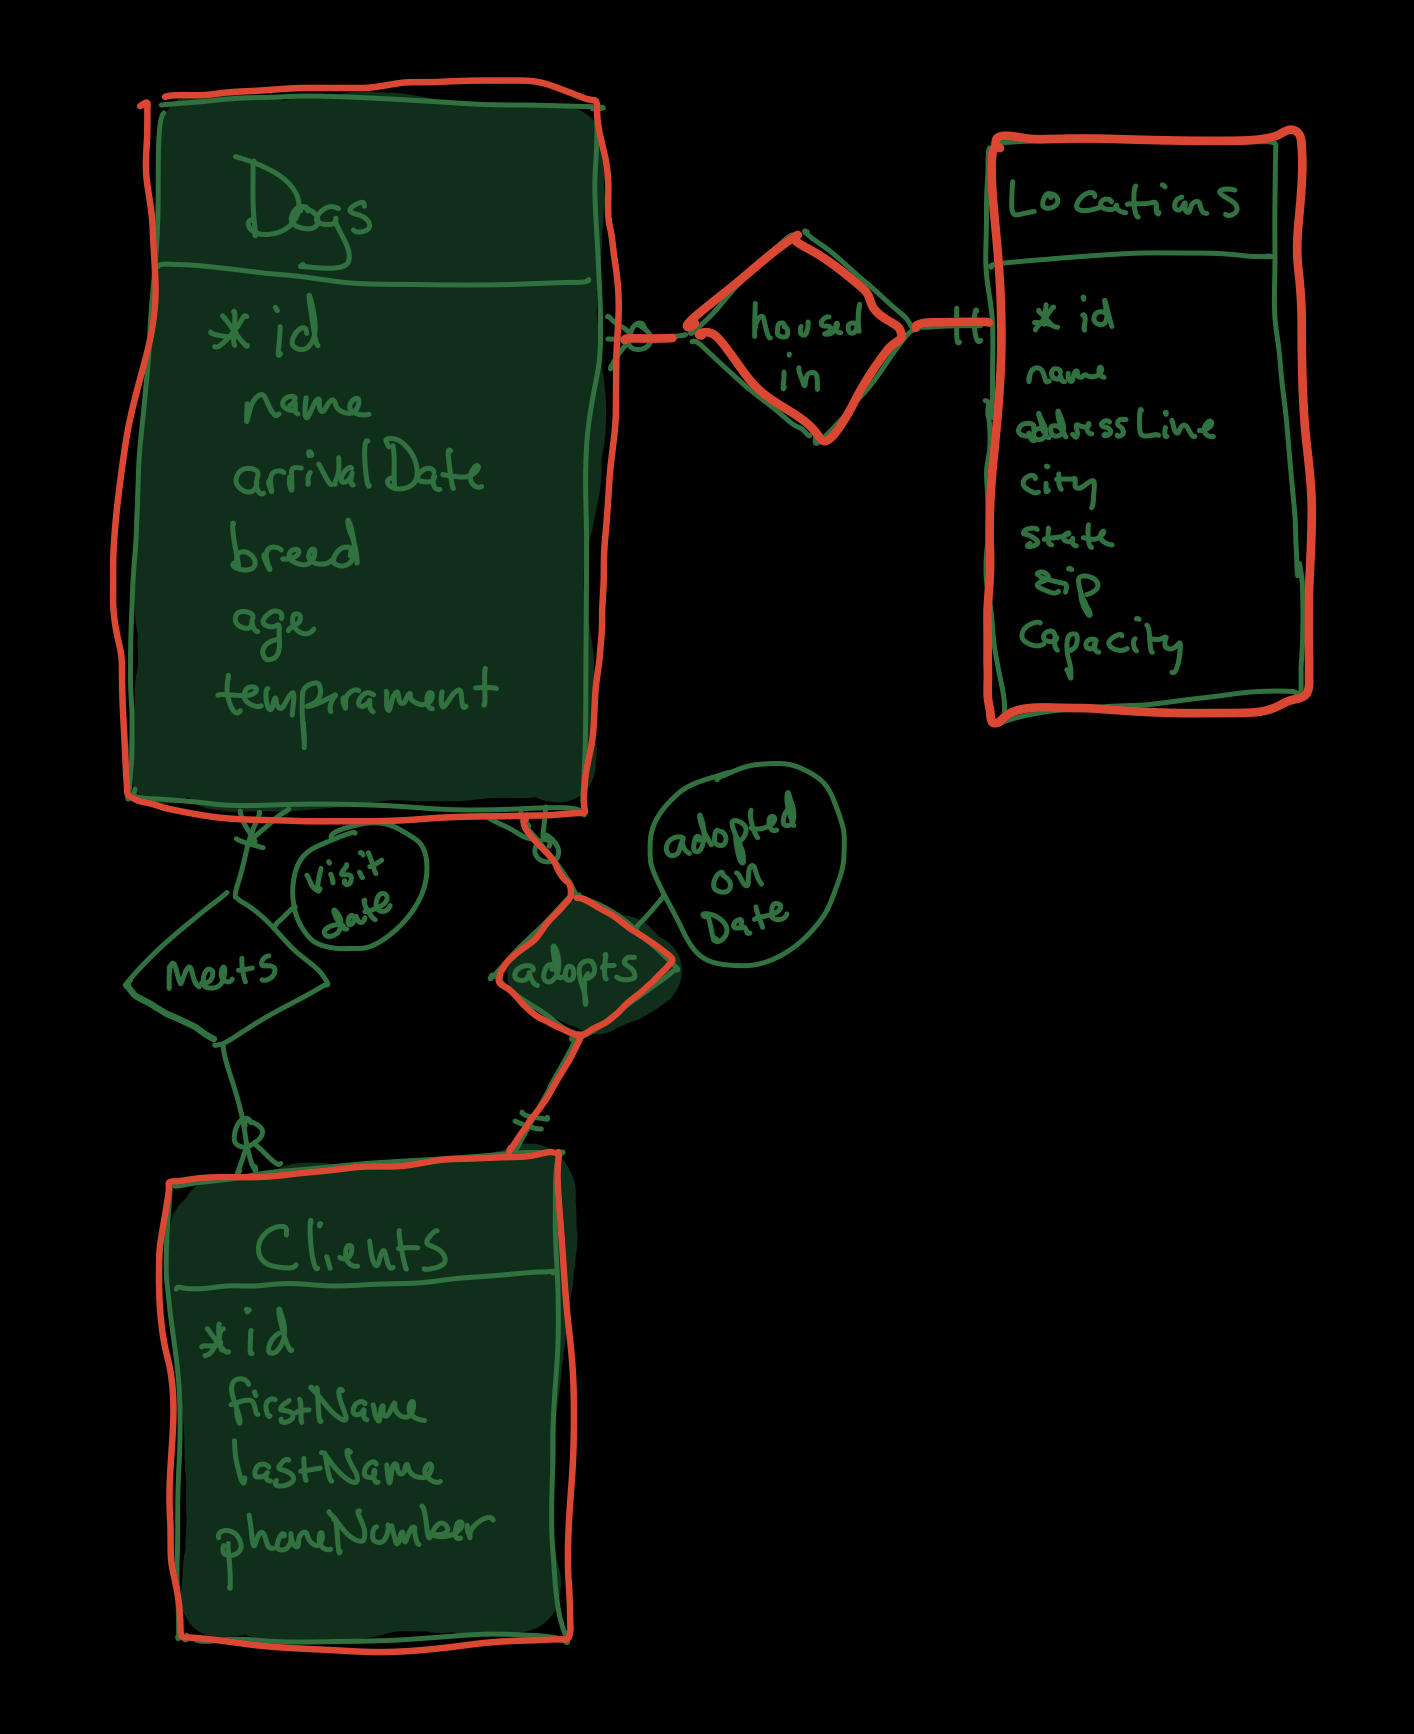 Dogs
* id
name
arrivalDate
breed
age
temprament
housed
in
Locations
* id
name
addressLine
city
state
zip
capacity
visit
date
Meets
adopts
adopted
on
Date
Clients
* id
firstName
lastName
phoneNumber